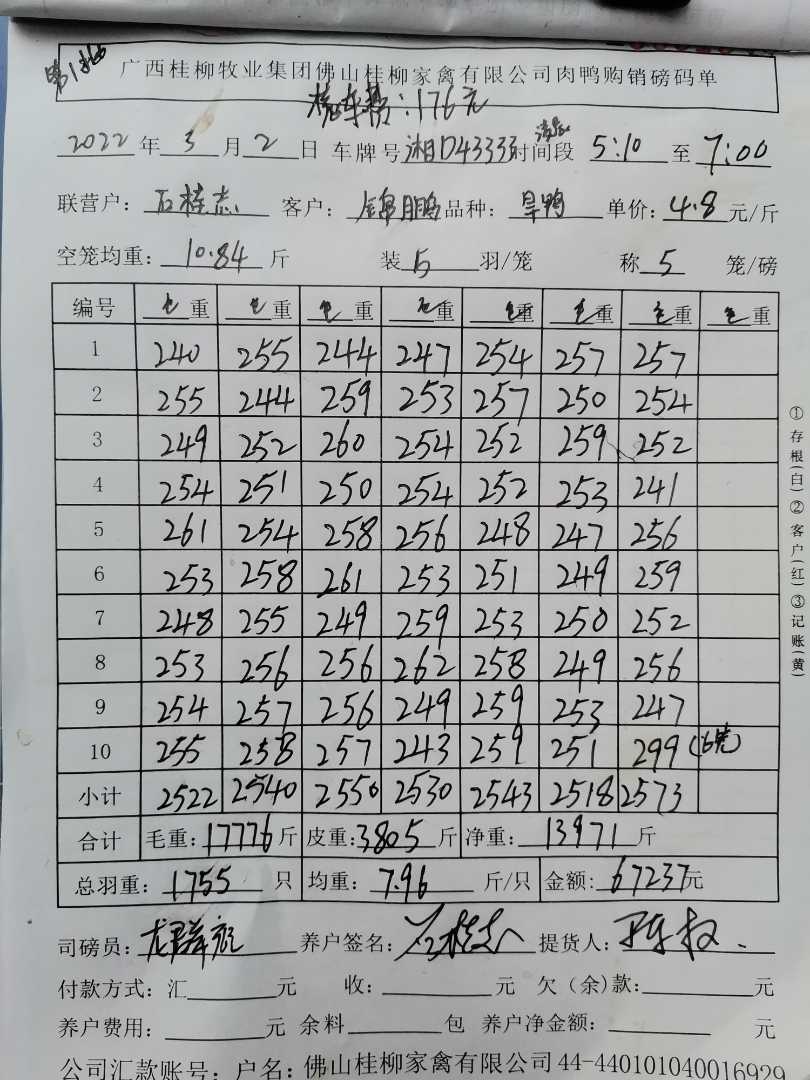 第1批
广西桂柳牧业集团佛山桂柳家禽有限公司肉鸭购销磅码单
176元
2022年3月2日 车牌号湘D43333时间段 5:10 至 7:00
联营户：石桂志 客户：锦鹏 品种：旱鸭 单价：4.8元/斤
空笼均重：10.84斤 装5羽/笼 称5笼/磅
编号 毛重 毛重 毛重 毛重 毛重 毛重 毛重 毛重
1 240 255 244 247 254 257 257
2 255 244 259 253 257 250 254
3 249 252 260 254 252 259 252
4 254 251 250 254 252 253 241
5 261 254 258 256 248 247 256
6 253 258 261 253 251 249 259
7 248 255 249 259 253 250 252
8 253 256 256 262 258 249 256
9 254 257 256 249 259 253 247
10 255 258 257 243 259 251 299 (6笼)
小计 2522 2540 2550 2530 2543 2518 2573
合计 毛重：17776斤 皮重：3805斤 净重：13971斤
总羽重：1755只 均重：7.96斤/只 金额：67237元
司磅员： 养户签名：石桂志 提货人：
付款方式：汇 元 收： 元 欠（余）款： 元
养户费用： 元 余料 包 养户净金额： 元
公司汇款账号：户名：佛山桂柳家禽有限公司44-440101040016929
①存根(白)②客户(红)③记账(黄)